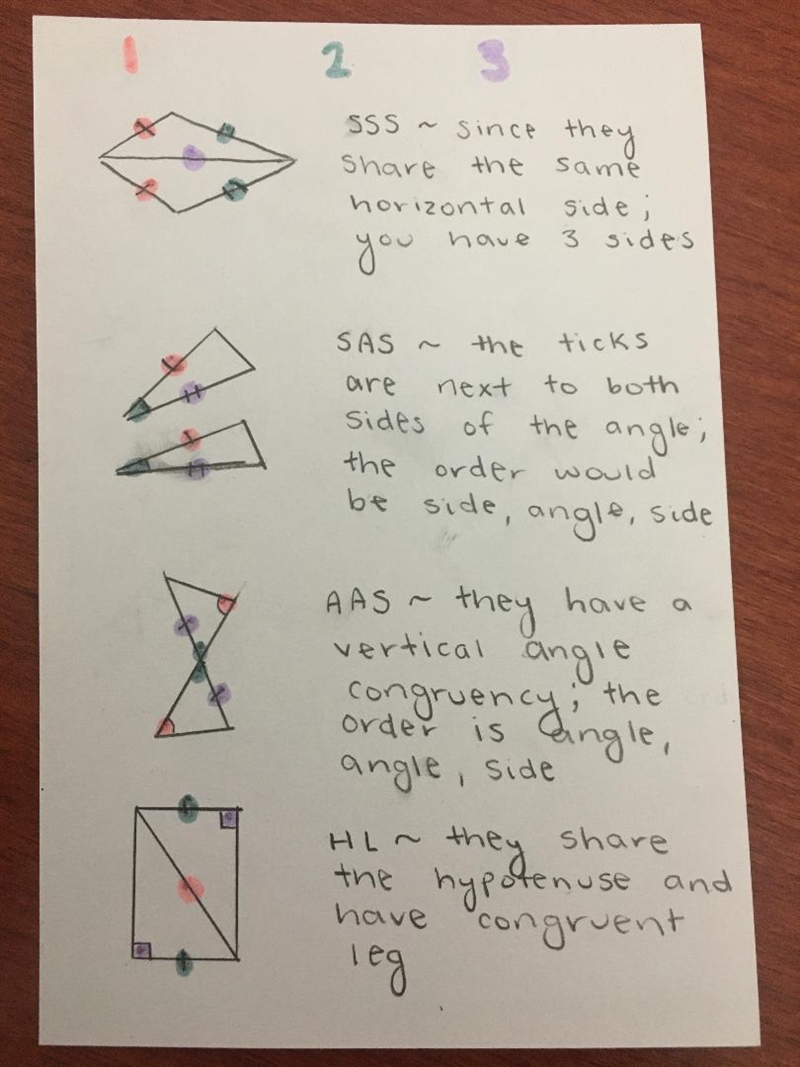 1 2 3
SSS ~ since they
share the same
horizontal side;
you have 3 sides
SAS ~ the ticks
are next to both
sides of the angle;
the order would
be side, angle, side
AAS ~ they have a
vertical angle
congruency; the
order is angle,
angle, side
HL ~ they share
the hypotenuse and
have congruent
leg